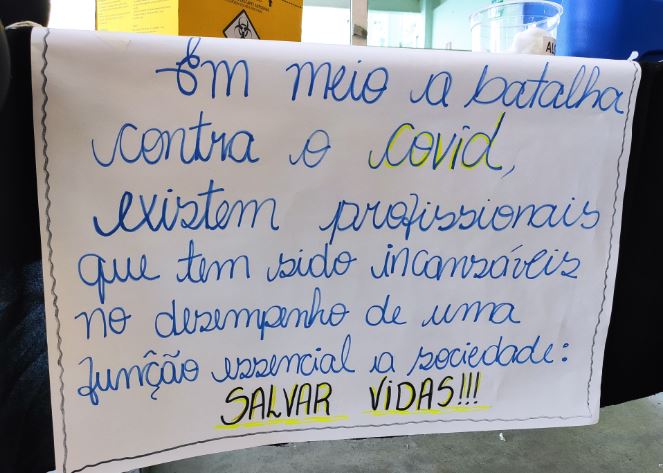 Em meio a batalha
contra o covid,
existem profissionais
que tem sido incansáveis
no desempenho de uma
função essencial a sociedade:
SALVAR VIDAS!!!